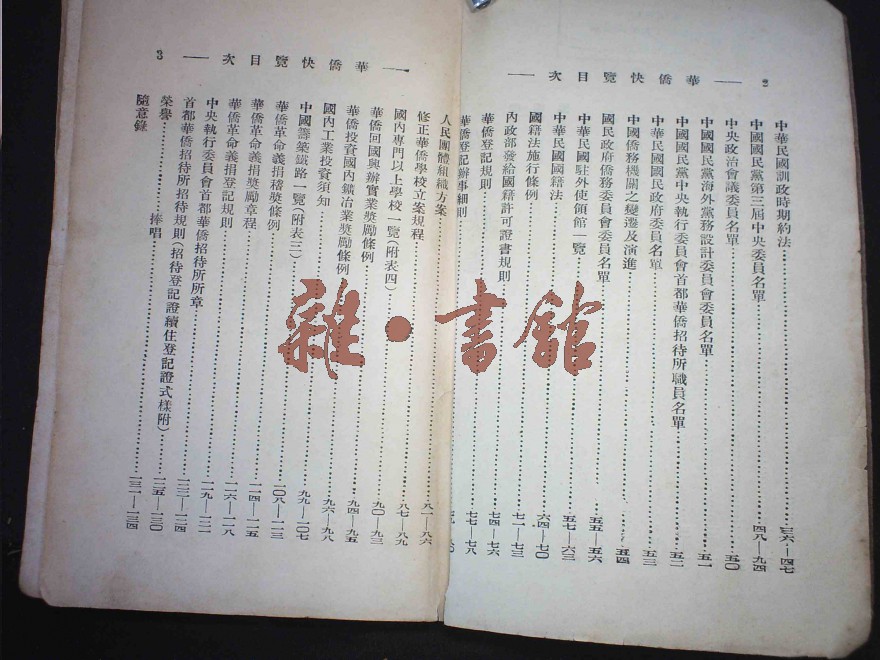 華僑快覽目次 2
中華民國訓政時期約法 三六—四七
中國國民黨第三屆中央委員名單 四八—九四
中央政治會議委員名單 五〇
中國國民黨海外黨務設計委員會委員名單 五一
中國國民黨中央執行委員會首都華僑招待所職員名單 五二
中華民國國民政府委員名單 五三
中國僑務機關之變遷及演進 五四
國民政府僑務委員會委員名單 五五—五六
中華民國駐外使領館一覽 五七—六三
中華民國國籍法
國籍法施行條例 六四—七〇
內政部發給國籍許可證書規則 七一—七三
華僑登記規則 七四—七六
華僑登記辦事細則 七七—七八
華僑快覽目次 3
人民團體組織方案
修正華僑學校立案規程 八一—八六
國內專門以上學校一覽(附表四) 八七—八九
華僑回國興辦實業獎勵條例 九〇—九三
華僑投資國內鑛冶業獎勵條例 九四—九五
國內工業投資須知 九六—九八
中國籌築鐵路一覽(附表三) 九九—一〇七
華僑革命義捐稽獎條例 一〇八—一一三
華僑革命義捐獎勵章程 一一四—一一五
華僑革命義捐登記規則 一一六—一一八
中央執行委員會首都華僑招待所所章 一一九—一二一
首都華僑招待所招待規則(招待登記證續住登記證式樣附) 一二二—一二四
榮譽 捧唱 一二五—一三〇
隨意錄 一三一—一三四
雜·書館